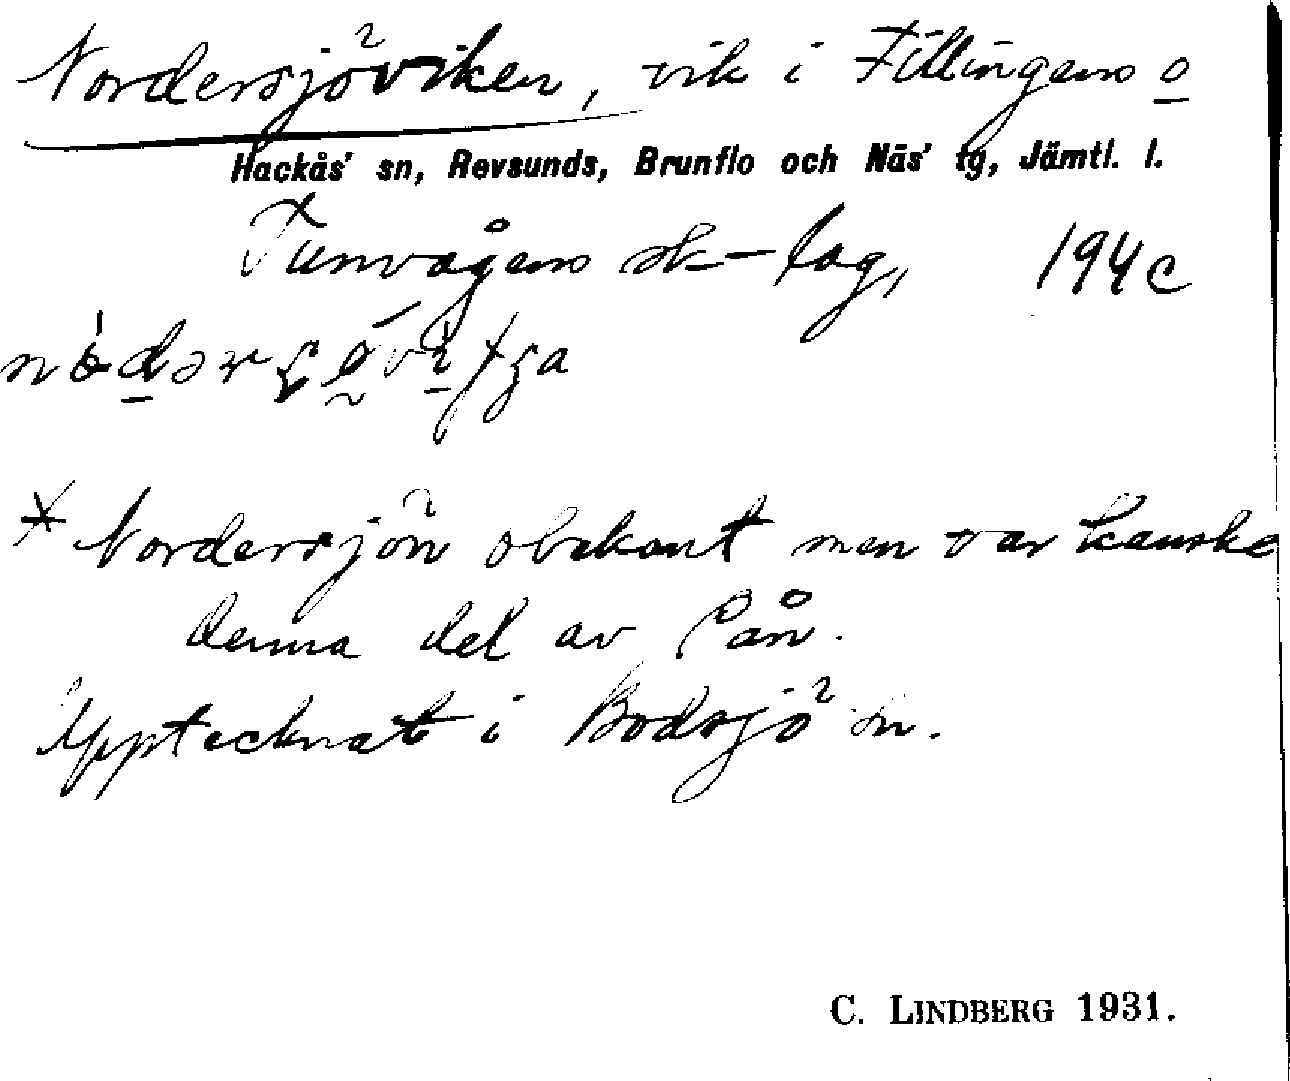 Nordersjöviken, vik i Fillingens o
Hackås' sn, Revsunds, Brunflo och Näs' tg, Jämtl. l.
Tunvågens sk-lag, 194c
* Nordersjön obekant men var kanske
denna del av sån.
Upptecknat i Bodsjö sn.
C. LINDBERG 1931.